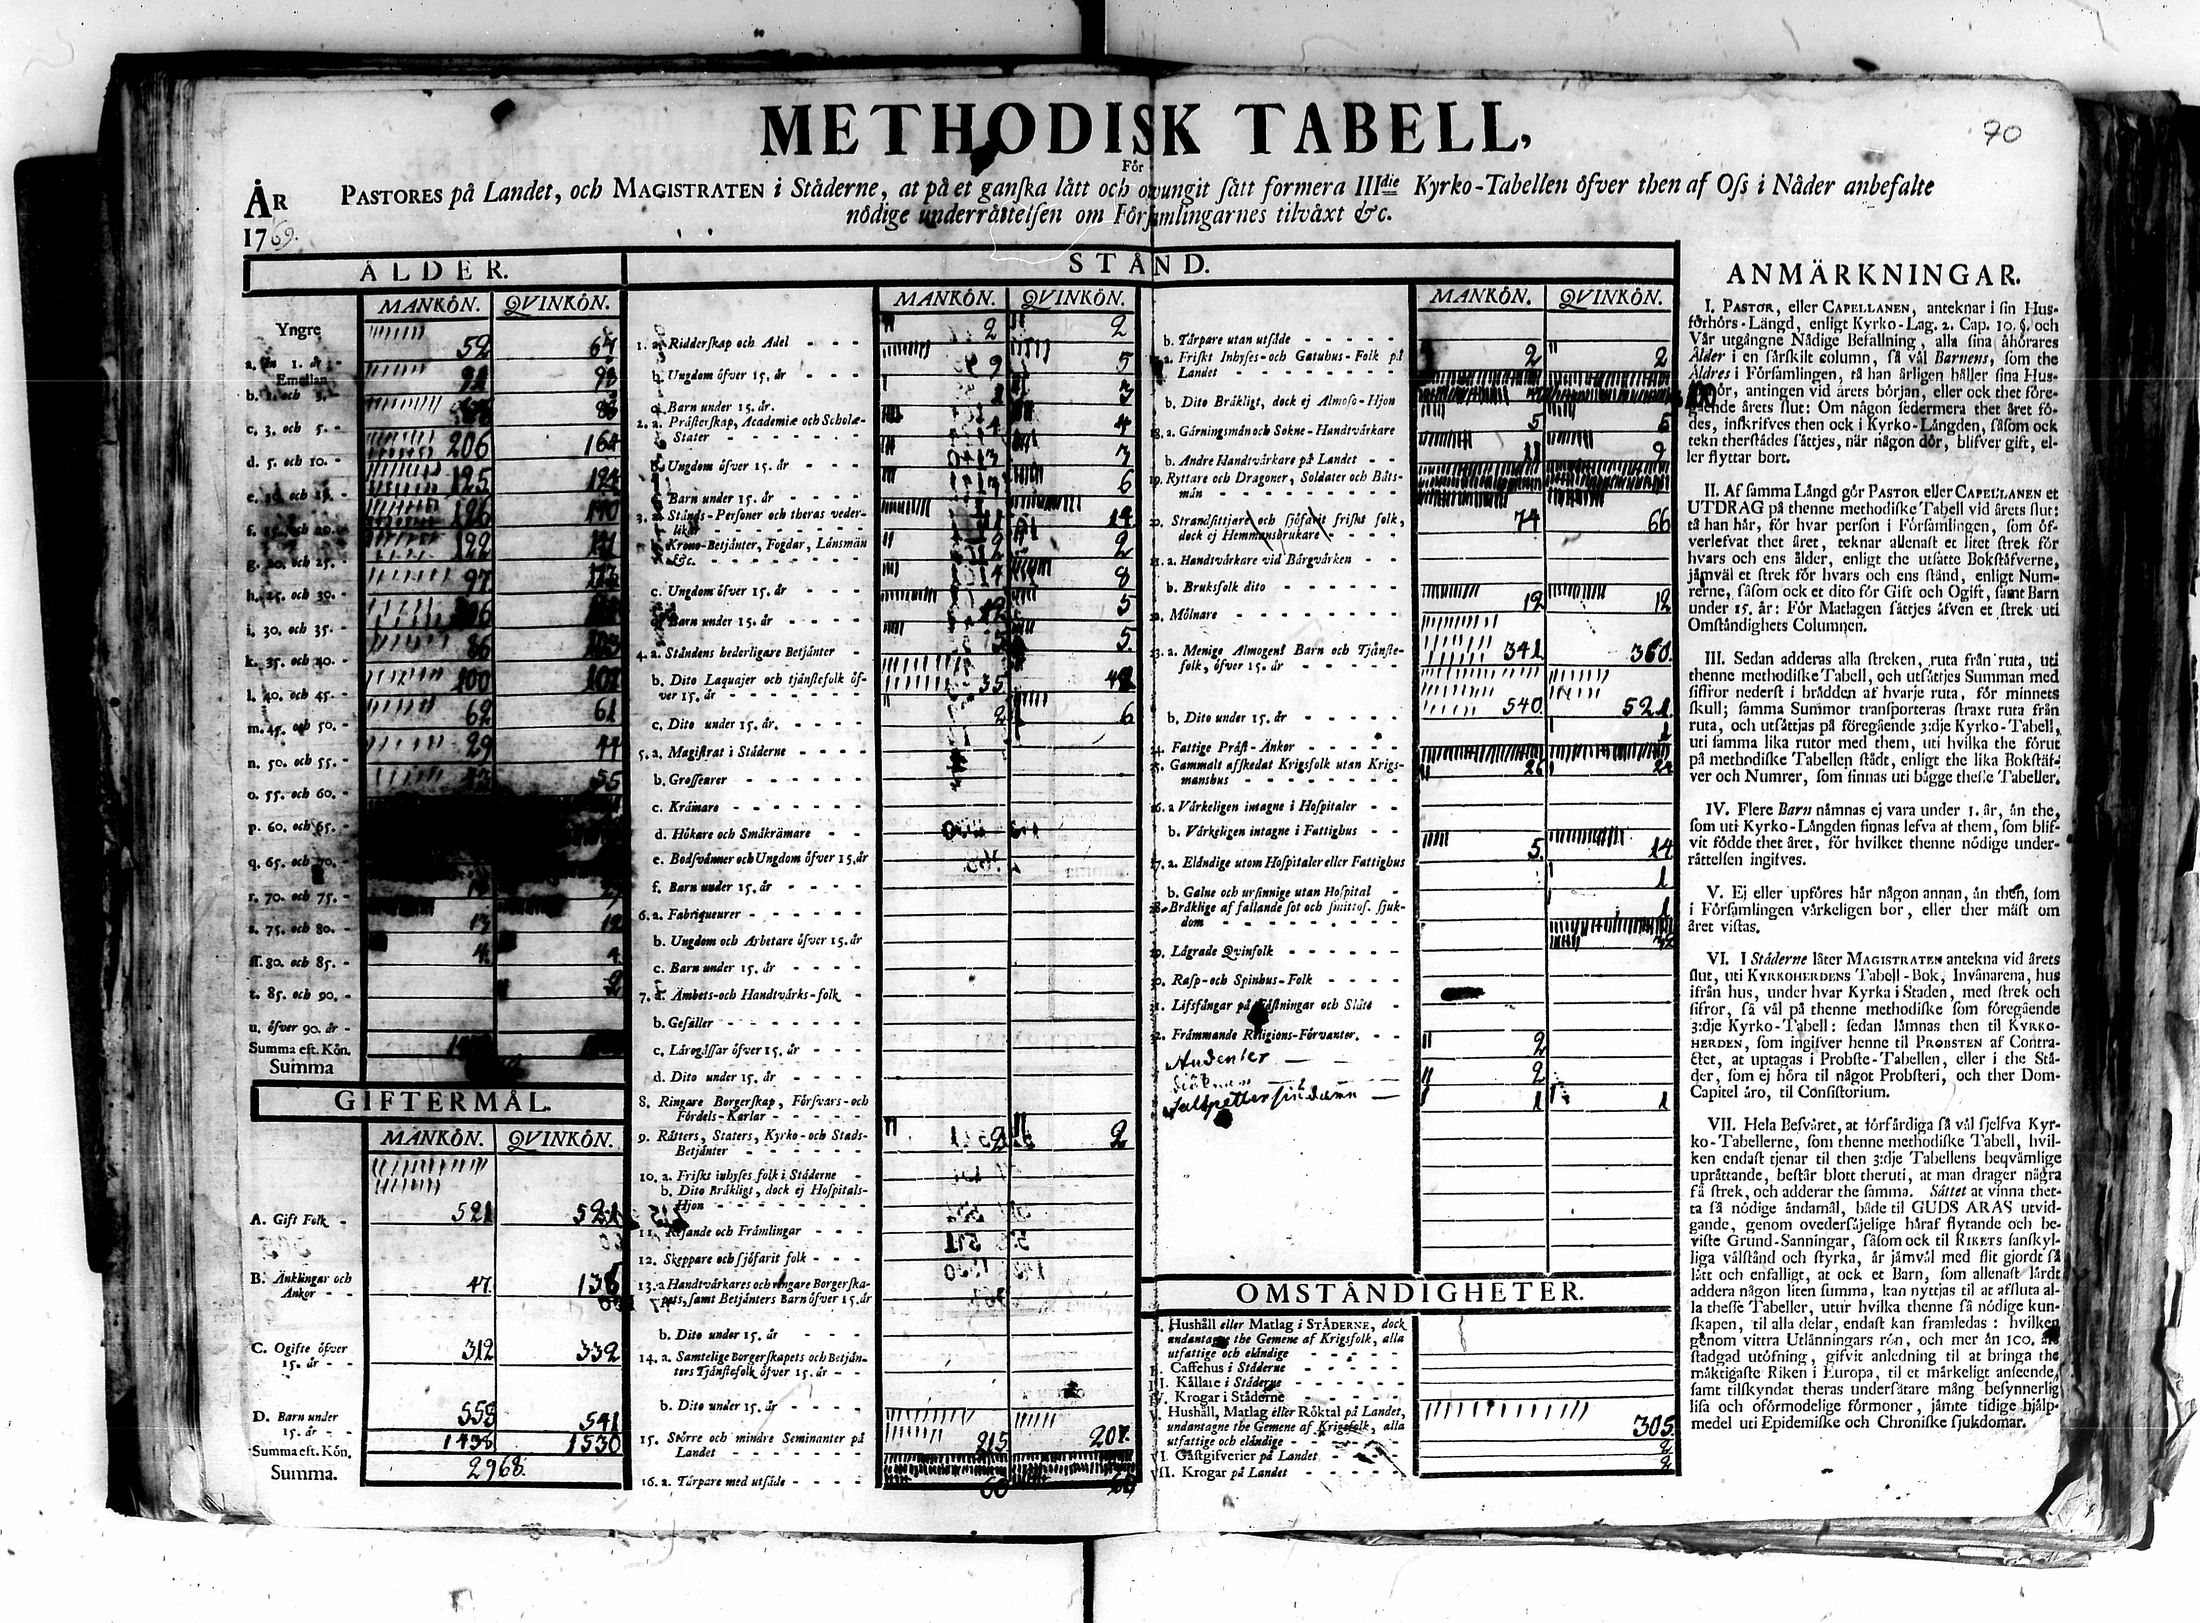 METHODISK TABELL,
70
För
ÅR
PASTORES på Landet, och MAGISTRATEN i Städerne, at på et ganska lätt och owungit sätt formera IIIdie Kyrko-Tabellen öfver then af Oss i Nåder anbefalte
nödige underrättelsen om Församlingarnes tilväxt &c.
1769.
ÅLDER.
MANKÖN. QVINKÖN.
Yngre
a. än 1. år - 52 67
Emellan
b. 1. och 3. -
c. 3. och 5. -
d. 5. och 10. - 206 164
e. 10. och 15. - 195 124
f. 15. och 20. - 126
g. 20. och 25. - 122
h. 25. och 30. - 97
i. 30. och 35. -
k. 35. och 40. - 86 103
l. 40. och 45. - 100
m. 45. och 50. - 62 61
n. 50. och 55. - 29 44
o. 55. och 60. - 55
p. 60. och 65. -
q. 65. och 70. -
r. 70. och 75. -
s. 75. och 80. - 13 12
ff. 80. och 85. - 4. 4.
t. 85. och 90. - 2
u. öfver 90. år -
Summa eft. Kön.
Summa
GIFTERMÅL.
MANKÖN. QVINKÖN.
A. Gift Folk - 521 521
B. Änklingar och
Änkor - - 47. 136
C. Ogifte öfver
15. år - - 312 332
D. Barn under
15. år - - 558 541
Summa eft. Kön. 1438 1530
Summa. 2968.
STÅND.
MANKÖN. QVINKÖN.
1. a. Ridderskap och Adel - - - 2 2
b. Ungdom öfver 15. år - - - - 9 5
c. Barn under 15. år. 3
2. a. Prästerskap, Academiæ och Scholæ-
Stater - - - - - - - 4 4
b. Ungdom öfver 15. år - - - 3
c. Barn under 15. år - - - - 6
3. a. Stånds-Personer och theras veder-
likar - - - - - - - 11 14
b. Krono-Betjänter, Fogdar, Länsmän
&c. - - - - - - - 2 2
c. Ungdom öfver 15. år - - - 8
d. Barn under 15. år - - - - 12 5
4. a. Ståndens hederligare Betjänter - 5 5.
b. Dito Laquajer och tjänstefolk öf-
ver 15. år - - - - - - - 35
c. Dito under 15. år. - - - - 2 6
5. a. Magistrat i Städerne - - - -
b. Grosseurer - - - - - - -
c. Krämare - - - - - - -
d. Hökare och Småkrämare - -
e. Bodsvänner och Ungdom öfver 15. år
f. Barn under 15. år - - - -
6. a. Fabriqueurer - - - - - -
b. Ungdom och Arbetare öfver 15. år
c. Barn under 15. år - - - -
7. a. Ämbets-och Handtvärks-folk -
b. Gesäller - - - - - - -
c. Lärogåssar öfver 15. år - - -
d. Dito under 15. år - - - -
8. Ringare Borgerskap, Försvars-och
Fördels-Karlar - - - - -
9. Rätters, Staters, Kyrko-och Stads-
Betjänter - - - - - - 2 2
10. a. Friskt inhyses folk i Städerne -
b. Dito Bräkligt, dock ej Hospitals-
Hjon - - - - - - -
11. Resande och Främlingar - - -
12. Skeppare och sjöfarit folk - - -
13. a Handtvärkares och ringare Borgerska-
pets, samt Betjänters Barn öfver 15. år
b. Dito under 15. år - - - -
14. a. Samtelige Borgerskapets och Betjän-
ters Tjänstefolk öfver 15. år - -
b. Dito under 15. år - - - -
15. Större och mindre Seminanter på
Landet - - - - - - - 215 207.
16. a. Tårpare med utsäde - - - - 60
MANKÖN. QVINKÖN.
b. Tårpare utan utsäde - - - -
a. Friskt Inhyses-och Gatuhus-Folk på
Landet - - - - - - - 2 2
b. Dito Bräkligt, dock ej Almoso-Hjon
18. a. Gärningsmän och Sokne-Handtvärkare 5 5
b. Andre Handtvärkare på Landet - - 11 9
19. Ryttare och Dragoner, Soldater och Båts-
män - - - - - - - - -
20. Strandsittjare och sjöfarit friskt folk,
dock ej Hemmansbrukare - - - - 74 66
21. a. Handtvärkare vid Bärgvärken - -
b. Bruksfolk dito - - - - - -
22. Mölnare - - - - - - - 12 12
23. a. Menige Almogens Barn och Tjänste-
folk, öfver 15. år - - - - - 341 360.
b. Dito under 15. år - - - - - 540. 521.
24. Fattige Präst-Änkor - - - - 1
25. Gammalt afskedat Krigsfolk utan Krigs-
manshus - - - - - - - 26 24
26. a Värkeligen intagne i Hospitaler - -
b. Värkeligen intagne i Fattighus - -
27. a. Eländige utom Hospitaler eller Fattighus 5. 14
b. Galne och ursinnige utan Hospital - 1
28. Bräklige af fallande sot och smittos. sjuk-
dom - - - - - - - - - 1
29. Lägrade Qvinfolk - - - - -
30. Rasp-och Spinhus-Folk - - - -
31. Lifsfångar på Fästningar och Slått -
32. Främmande Religions-Förvanter. - - 2
2
Salpettersjudarne — 1 1
OMSTÄNDIGHETER.
I. Hushåll eller Matlag i STÄDERNE, dock
undantagne the Gemene af Krigsfolk, alla
utfattige och eländige - - - - -
II. Caffehus i Städerne - - - - -
III. Källare i Städerne - - - - -
IV. Krogar i Städerne - - - - -
V. Hushåll, Matlag eller Röktal på Landet,
undantagne the Gemene af Krigsfolk, alla
utfattige och eländige - - - - - 305.
VI. Gästgifverier på Landet - - - - 2
VII. Krogar på Landet - - - - - 2
ANMÄRKNINGAR.
I. PASTOR, eller CAPELLANEN, anteknar i sin Hus-
förhörs-Längd, enligt Kyrko-Lag. 2. Cap. 10. §. och
Vår utgångne Nådige Befallning, alla sina åhörares
Ålder i en särskilt column, så väl Barnens, som the
Äldres i Församlingen, tå han årligen håller sina Hus-
förhör, antingen vid årets början, eller ock thet före-
gående årets slut: Om någon sedermera thet året fö-
des, inskrifves then ock i Kyrko-Längden, såsom ock
tekn therstädes sättjes, när någon dör, blifver gift, el-
ler flyttar bort.
II. Af samma Längd gör PASTOR eller CAPELLANEN et
UTDRAG på thenne methodiske Tabell vid årets slut:
tå han här, för hvar person i Församlingen, som öf-
verlefvat thet året, teknar allenast et litet strek för
hvars och ens ålder, enligt the utsatte Bokstäfverne,
jämväl et strek för hvars och ens stånd, enligt Num-
rerne, såsom ock et dito för Gift och Ogift, samt Barn
under 15. år: För Matlagen sättjes äfven et strek uti
Omständighets Columnen.
III. Sedan adderas alla streken, ruta från ruta, uti
thenne methodiske Tabell, och utsättjes Summan med
siffror nederst i brädden af hvarje ruta, för minnets
skull; samma Summor transporteras straxt ruta från
ruta, och utsättjas på föregående 3:dje Kyrko-Tabell,
uti samma lika rutor med them, uti hvilka the förut
på methodiske Tabellen städt, enligt the lika Bokstäf-
ver och Numrer, som finnas uti bägge thesse Tabeller.
IV. Flere Barn nämnas ej vara under 1. år, än the,
som uti Kyrko-Längden finnas lefva af them, som blif-
vit födde thet året, för hvilket thenne nödige under-
rättelsen ingifves.
V. Ej eller upföres här någon annan, än then, som
i Församlingen värkeligen bor, eller ther mäst om
året vistas.
VI. I Städerne låter MAGISTRATEN antekna vid årets
slut, uti KYRKOHERDENS Tabell-Bok, Invånarena, hus
ifrån hus, under hvar Kyrka i Staden, med strek och
sifror, så väl på thenne methodiske som föregående
3:dje Kyrko-Tabell: sedan lämnas then til KYRKO-
HERDEN, som ingifver henne til PROBSTEN af Contra-
ctet, at uptagas i Probste-Tabellen, eller i the Stä-
der, som ej höra til något Probsteri, och ther Dom-
Capitel äro, til Consistorium.
VII. Hela Besväret, at förfärdiga så väl sjelfva Kyr-
ko-Tabellerne, som thenne methodiske Tabell, hvil-
ken endast tjenar til then 3:dje Tabellens beqvämlige
uprättande, består blott theruti, at man drager några
få strek, och adderar the samma. Sättet at vinna thet-
ta så nödige ändamål, både til GUDS ÄRAS utvid-
gande, genom ovedersäjelige häraf flytande och be-
viste Grund-Sanningar, såsom ock til RIKETS sanskyl-
liga välstånd och styrka, är jämväl med flit gjordt så
lätt och enfalligt, at ock et Barn, som allenast lärdt
addera någon liten summa, kan nyttjas til at afsluta al-
la thesse Tabeller, utur hvilka thenne så nödige kun-
skapen, til alla delar, endast kan framledas: hvilken
genom vittra Utlänningars rön, och mer än 100. års
stadgad utöfning, gifvit anledning til at bringa the
mäktigaste Riken i Europa, til et märkeligt anseende,
samt tilskyndat theras undersåtare mång besynnerlig
lisa och oförmodelige förmoner, jämte tidige hjälp-
medel uti Epidemiske och Chroniske sjukdomar.